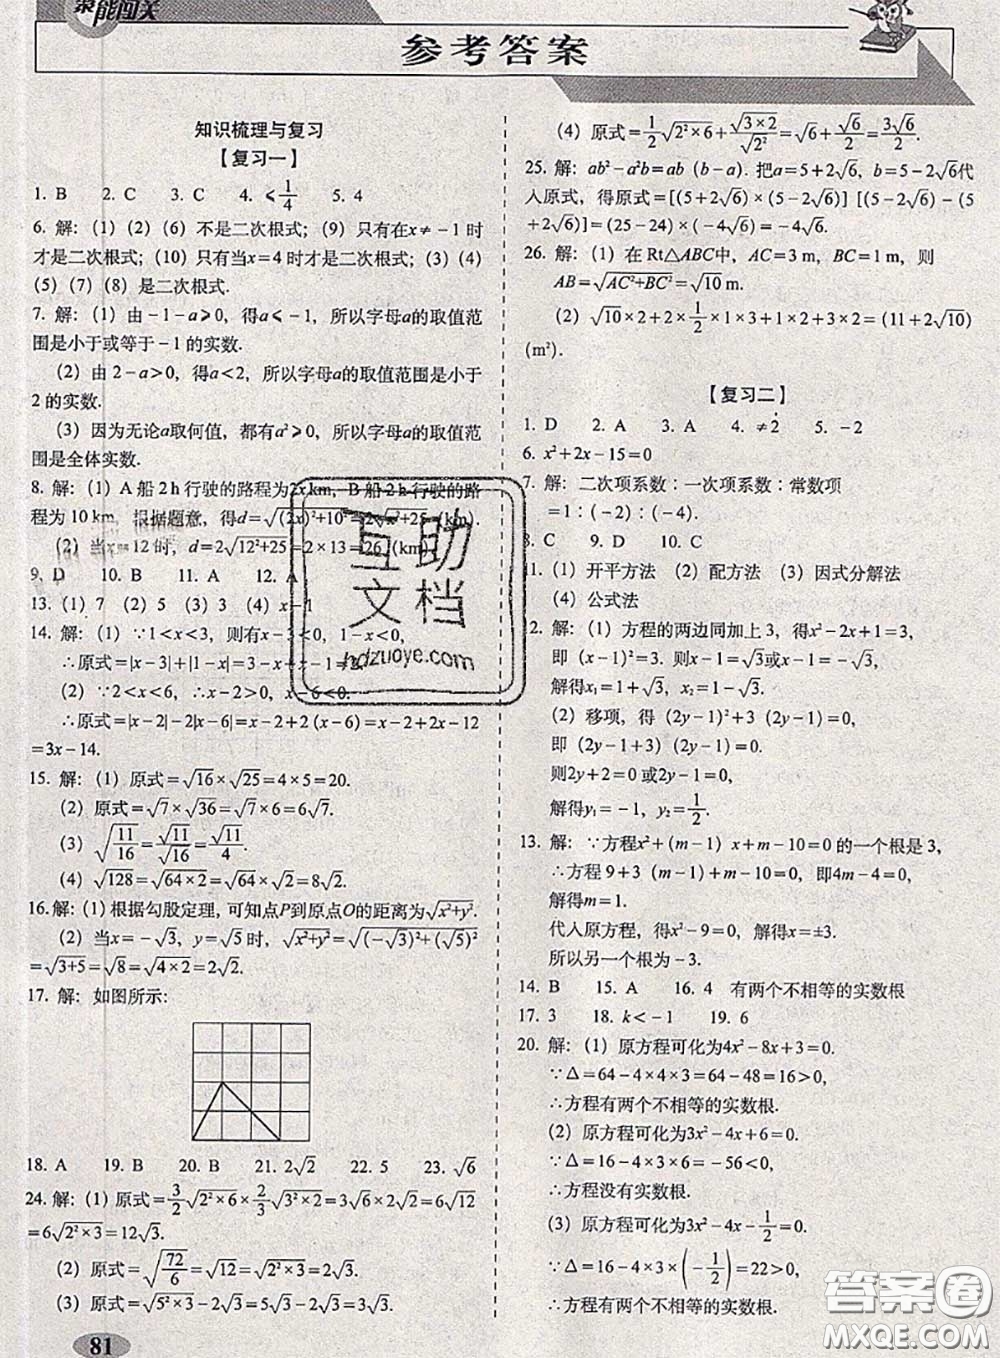 聚能闯关
参考答案
知识梳理与复习
【复习一】
1. B 2. C 3. C 4. ⩽1/4 5. 4
6. 解：(1) (2) (6) 不是二次根式；(9) 只有在x≠－1 时
才是二次根式；(10) 只有当x＝4 时才是二次根式；(3) (4)
(5) (7) (8) 是二次根式.
7. 解：(1) 由－1－a⩾0，得a⩽－1，所以字母a的取值范
围是小于或等于－1 的实数.
(2) 由 2－a>0，得a<2，所以字母a的取值范围是小于
2 的实数.
(3) 因为无论a取何值，都有a²⩾0，所以字母a的取值
范围是全体实数.
8. 解：(1) A 船 2 h 行驶的路程为2x km，B 船 2 h 行驶的路
程为 10 km，根据题意，得d＝√((2x)²+10²)＝2√(x²+25) (km).
(2) 当x＝12 时，d＝2√(12²+25)＝2×13＝26 (km).
9. D 10. B 11. A 12. A
13. (1) 7 (2) 5 (3) 3 (4) x－1
14. 解：(1) ∵1<x<3，则有x－3<0，1－x<0，
∴原式＝|x－3|＋|1－x|＝3－x＋x－1＝2.
(2) ∵2<x<6，∴x－2>0，x－6<0.
∴原式＝|x－2|－2|x－6|＝x－2＋2 (x－6)＝x－2＋2x－12
＝3x－14.
15. 解：(1) 原式＝√16×√25＝4×5＝20.
(2) 原式＝√7×√36＝√7×6＝6√7.
(3) √(11/16)＝√11/√16＝√11/4.
(4) √128＝√(64×2)＝√64×√2＝8√2.
16.解：(1)根据勾股定理，可知点P到原点O的距离为√(x²+y²).
(2) 当x＝－√3，y＝√5 时，√(x²+y²)＝√((－√3)²+(√5)²)
＝√(3+5)＝√8＝√(4×2)＝2√2.
17. 解：如图所示：
18. A 19. B 20. B 21. 2√2 22. 5 23. √6
24. 解：(1) 原式＝3/2√(2²×6)×2/3√(3²×2)＝3√6×2√2＝6√12
＝6√(2²×3)＝12√3.
(2) 原式＝√(72/6)＝√12＝√(2²×3)＝2√3.
(3) 原式＝√(5²×3)－2√3＝5√3－2√3＝3√3.
81
(4) 原式＝1/2√(2²×6)+√(3×2)/√(2²)＝√6+√6/2＝3√6/2.
25. 解：ab²－a²b＝ab (b－a). 把a＝5＋2√6，b＝5－2√6代
入原式，得原式＝[(5＋2√6)×(5－2√6)] [5－2√6－(5
＋2√6)]＝(25－24)×(－4√6)＝－4√6.
26. 解：(1) 在 Rt△ABC中，AC＝3 m，BC＝1 m，则
AB＝√(AC²+BC²)＝√10 m.
(2) √10×2＋2×1/2×1×3＋1×2＋3×2＝(11＋2√10)
(m²).
【复习二】
1. D 2. A 3. A 4. ≠2 5. －2
6. x²＋2x－15＝0
7. 解：二次项系数：一次项系数：常数项
＝1：(－2)：(－4).
8. C 9. D 10. C
11. (1) 开平方法 (2) 配方法 (3) 因式分解法
(4) 公式法
2. 解：(1) 方程的两边同加上 3，得x²－2x＋1＝3，
即 (x－1)²＝3. 则x－1＝√3或x－1＝－√3，
解得x₁＝1＋√3，x₂＝1－√3.
(2) 移项，得 (2y－1)²＋3 (2y－1)＝0，
即 (2y－1＋3) (2y－1)＝0，
则2y＋2＝0 或2y－1＝0，
解得y₁＝－1，y₂＝1/2.
13. 解：∵方程x²＋(m－1) x＋m－10＝0 的一个根是 3，
∴方程 9＋3 (m－1)＋m－10＝0，即4m－4＝0，
解得m＝1.
代入原方程，得x²－9＝0，解得x＝±3.
所以另一个根为－3.
14. B 15. A 16. 4 有两个不相等的实数根
17. 3 18. k<－1 19. 6
20. 解：(1) 原方程可化为4x²－8x＋3＝0.
∵Δ＝64－4×4×3＝64－48＝16>0，
∴方程有两个不相等的实数根.
(2) 原方程可化为3x²－4x＋6＝0.
∵Δ＝16－4×3×6＝16－72＝－56<0，
∴方程没有实数根.
(3) 原方程可化为3x²－4x－1/2＝0.
∵Δ＝16－4×3×(－1/2)＝22>0，
∴方程有两个不相等的实数根.
互助
文档
hdzuoye.com
答案圈
MXQE.COM